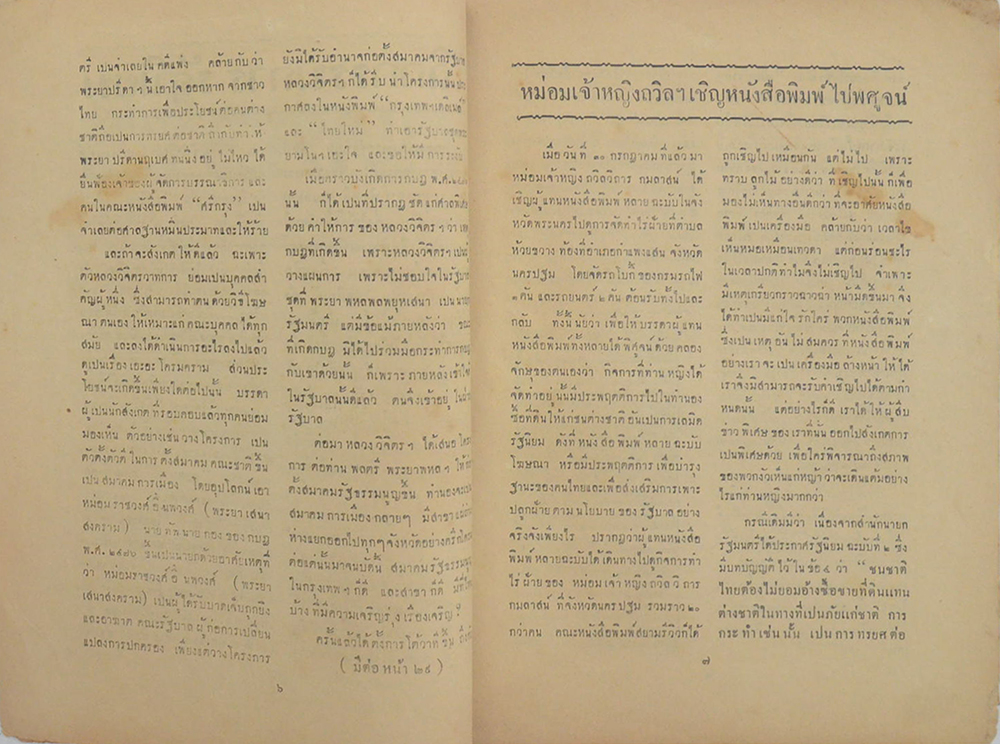 ตรี เปนจำเลยใน คดีแพ่ง คล้ายกับ ว่า
พระยาปรีดา ฯ นี้ เอาใจ ออกหาก จากชาว
ไทย กระทำการเพื่อประโยชน์ต่อคนต่าง
ชาติถือเปนการทรยศ ต่อชาติ
พระยา ปรีดานฤเบศ ทนนิ่ง อยู่ ไม่ไหว ได้
ยื่นฟ้องเจ้าของผู้จัดการบรรณาธิการ และ
คนในคณะหนังสือพิมพ์ “ศรีกรุง” เปน
จำเลยต่อศาลฐานหมิ่นประมาทและให้ร้าย
และถ้าจะสังเกต ให้ดีแล้ว ฉะเพาะ
ตัวหลวงวิจิตรวาทการ ย่อมเปนบุคคลสำ
คัญผู้หนึ่ง ซึ่งสามารถทำตน ด้วยวิธีโฆษ
ณา ตนเอง ให้เหมาะแก่ คณะบุคคล ได้ทุก
สมัย และลงได้ดำเนินการอะไรลงไปแล้ว
ดูเปนเรื่อง เอะอะ โครมคราม ส่วนประ
โยชน์จะเกิดขึ้นเพียงใดต่อไปนั้น บรรดา
ผู้ เปนนักสังเกต ที่รอบคอบแล้วทุกคนย่อม
มองเห็น ตัวอย่างเช่น วางโครงการ เปน
ตัวตั้งตัวตี ในการ ตั้งสมาคม คณะชาติ ขึ้น
เปน สมาคม การเมือง โดยอุปโลกน์ เอา
หม่อมราชวงศ์ สิทธิ์ นพวงศ์ ( พระยา เสนา
สงคราม ) นาย ทัพ นาย กอง ของ กบฏ
พ.ศ. ๒๔๗๖ ขึ้นเปนนายกด้วยอาศัยเหตุที่
ว่า หม่อมราชวงศ์ สิทธิ์ นพวงศ์ ( พระยา
เสนาสงคราม ) เปนผู้ ได้รับบาดเจ็บถูกยิง
และอาฆาต คณะรัฐบาล ผู้ก่อการเปลี่ยน
แปลงการปกครอง เพียงแต่วางโครงการ
๖
ยังมิได้รับอำนาจก่อตั้งสมาคมจากรัฐบาล
หลวงวิจิตร ฯ ก็ได้ รีบ นำ โครงการนั้น
กาศลงในหนังพิมพ์ “ กรุงเทพฯเดลิเมล์ ”
และ “ ไทยใหม่ ” ทำเอารัฐบาล
เมื่อคราวบังเกิดการกบฏ พ.ศ.
นั้น ก็ได้ เปนที่ปรากฏ ชัด แก่ศาลพิเศษ
ด้วย คำให้การ ของ หลวงวิจิตร ฯ ว่า
กบฏที่เกิดขึ้น เพราะหลวงวิจิตรฯ เปน
วางแผนการ เพราะไม่ชอบใจ ในรัฐบาล
ชุดที่ พระยา พหลพลพยุหเสนา เปน นายก
รัฐมนตรี แต่มีข้อแม้ภายหลังว่า
ที่เกิดกบฏ มิได้ไปร่วมมือกระทำการกบฏ
กับเขาด้วยนั้น ก็เพราะ ภายหลังเข้าใจ
ในรัฐบาลนั้นดีแล้ว ตนจึงเขาอยู่ ใน
รัฐบาล
ต่อมา หลวง วิจิตร ฯ ได้เสนอ โครง
การ ต่อท่าน พลตรี พระยาพหล ฯ ให้
ตั้งสมาคมรัฐธรรมนูญขึ้น ทำนอง
สมาคม การเมือง กลายๆ มีสาขา
ห่างแยกออกไปทุกๆ จังหวัดอย่างครึกโครม
ต่อแต่นั้นมาจนบัดนี้ สมาคม รัฐธรรมนูญ
ในกรุงเทพ ฯ ก็ดี และสาขา ก็ดี
บ้าง ที่มีความเจริญรุ่ง เรื่องเจริญ
ครั้นแล้วได้ ตั้งการ โต้วาที ขึ้น
( มีต่อ หน้า ๒๙ )
หม่อมเจ้าหญิงถวิลฯ เชิญหนังสือพิมพ์ ไปพิศูจน์
เมื่อ วัน ที่ ๓๐ กรกฎาคม ที่แล้ว มา
หม่อมเจ้าหญิง ถวิลวิการ กมลาสน์ ได้
เชิญผู้แทนหนังสือพิมพ์ หลาย ฉะบับในจัง
หวัดพระนครไปดูการจัดทำไร่ฝ้ายที่ตำบล
ห้วยขวาง ท้องที่อำเภอกำแพงแสน จังหวัด
นครปฐม โดยจัดรถโบกี้ ของกรมรถไฟ
๑ คัน และรถยนตร์ ๒ คัน ต้อนรับทั้งไปและ
กลับ ทั้งนี้ นัยว่า เพื่อ ให้ บรรดาผู้แทน
หนังสือพิมพ์ทั้งหลายได้ พิศูจน์ ด้วย คลอง
จักษุของตนเองว่า กิจการที่ท่านหญิงได้
จัดทำอยู่ นั้นมีประพฤติการไปในทำนอง
ซื้อที่ดินให้แก่ชนต่างชาติ อันเปนการเลมิด
รัฐนิยม ดังที่ หนังสือ พิมพ์ หลาย ฉะบับ
โฆษณา หรือมีประพฤติการ เพื่อบำรุง
ฐานะของคนไทยและเพื่อส่งเสริมการเพาะ
ปลูกฝ้าย ตาม นโยบาย ของ รัฐบาล อย่าง
จริงจังเพียงไร ปรากฏว่าผู้แทนหนังสือ
พิมพ์ หลายฉะบับได้ เดินทางไปดูกิจการทำ
ไร่ ฝ้าย ของ หม่อม เจ้า หญิง ถวิล วิ การ
กมลาสน์ ที่จังหวัดนครปฐม รวมราว ๒๐
กว่าคน คณะหนังสือพิมพ์สยามรีวิวก็ได้
ถูกเชิญไป เหมือนกัน แต่ไม่ไป เพราะ
ทราบ ถูกไม้ อย่างดีว่า ที่ เชิญไปนั้น ก็เพื่อ
มองไม่เห็นทางอื่นดีกว่า ที่จะอาศัยหนังสือ
พิมพ์ เปนเครื่องมือ คล้ายกับว่า เวลาไข้
เห็นหมอเหมือนเทวดา แต่ก่อนร่อนชะไร
ในเวลาปกติ ทำไมจึงไม่เชิญไป จำเพาะ
มีเหตุเกรียวกราวฉาวฉ่า หน้ามืดขึ้นมา จึง
ได้ทำเปนมีแก่ใจ รักใคร่ พวกหนังสือพิมพ์
ซึ่ง เปน เหตุ อัน ไม่ สมควร ที่ หนังสือพิมพ์
อย่างเรา จะ เปน เครื่องมือ ล้างหน้า ให้ ได้
เราจึงมิสามารถจะรับคำเชิญไปได้ตามกำ
หนดนั้น แต่อย่างไรก็ดี เราได้ ให้ ผู้สืบ
ข่าว พิเศษ ของ เราที่นั้น ออกไปสังเกตการ
เปนพิเศษด้วย เพื่อใคร่พิจารณาถึงสภาพ
ของพวกงัวเห็นแก่หญ้า ว่าจะเดินแต้มอย่าง
ไรแก่ท่านหญิงมากกว่า
กรณีเดิมมีว่า เนื่องจากสำนักนายก
รัฐมนตรีได้ประกาศรัฐนิยม ฉะบับที่ ๒ ซึ่ง
มีบทบัญญัติ ไว้ ใน ข้อ ๔ ว่า “ ชนชาติ
ไทยต้องไม่ยอมอ้างชื้อขายที่ดินแทน
ต่างชาติในทางที่เปนภัยแก่ชาติ การ
กระ ทำ เช่น นั้น เปน การ ทรยศ ต่อ
๗